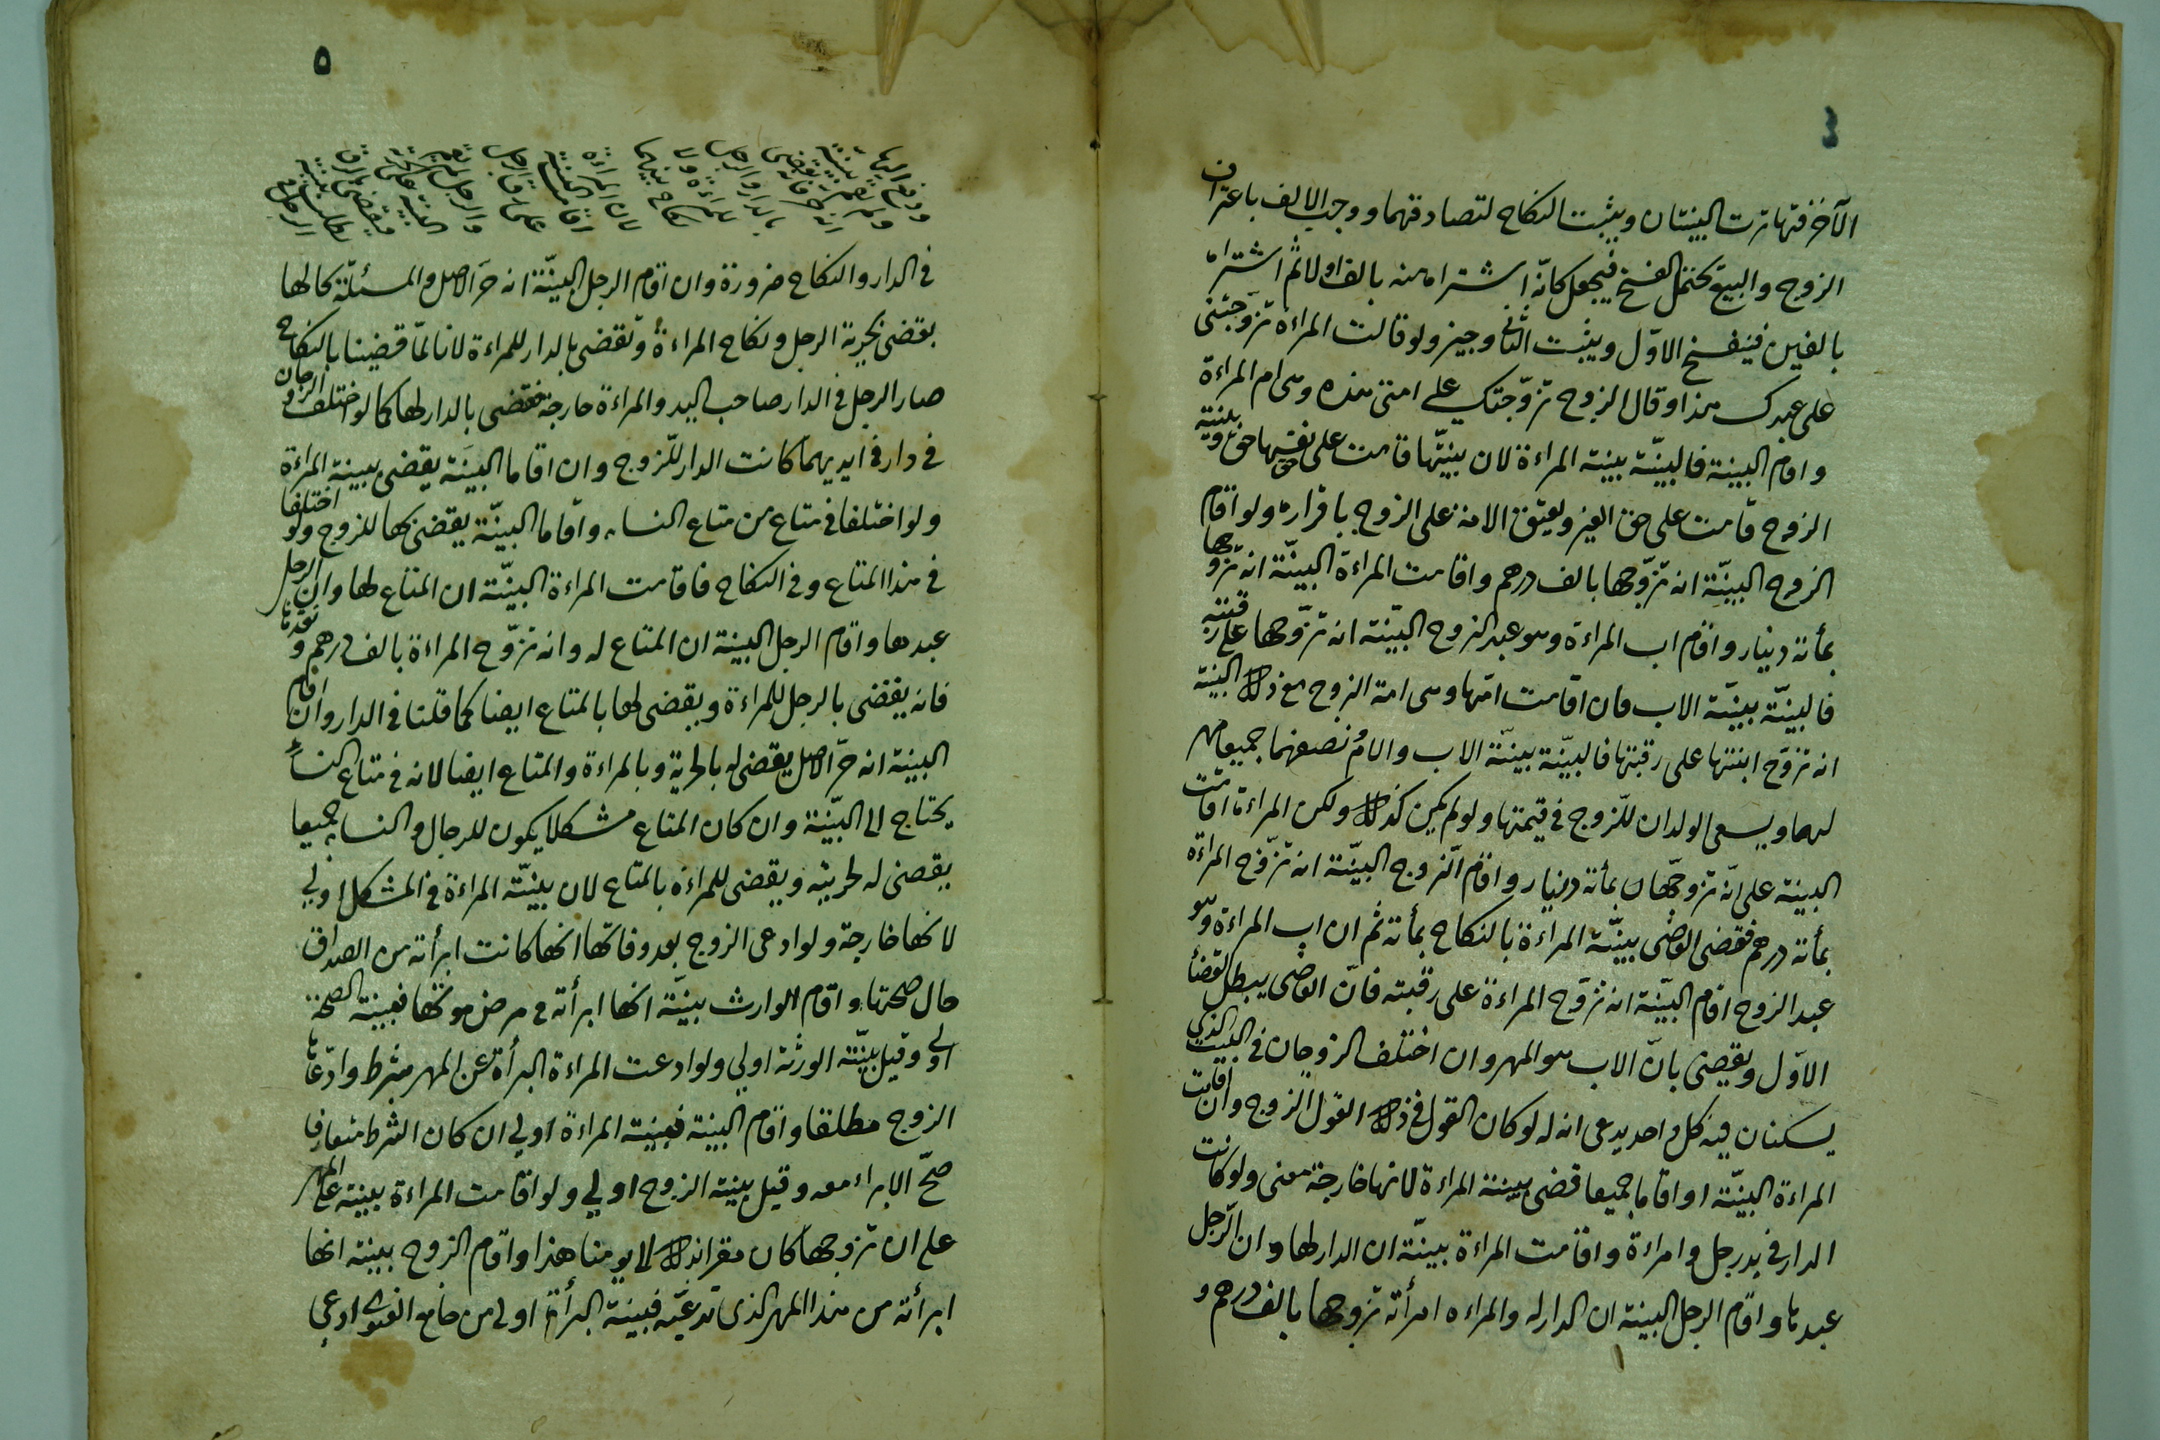 ٤
الآخر فتهاترت البينتان ويثبت النكاح لتصادقهما ووجب الالف باعتراف
الزوج والبيع يحتمل الفسخ فيجعل كانّه اشتراه منه بالف اولا ثم اشتراه
بالفين فينفسخ الاوّل ويثبت الثانى وجيز ولو قالت المراءة تزوّجتنى
على عبدك هذا وقال الزوج تزوّجتك على امتى هذه وهى ام المراءة
واقام البينة فالبينّة بينة المراءة لان بينّتها قامت على حق نفسها وبينة
الزوج قامت على حق الغير ويعتق الامة على الزوج باقراره ولو اقام
الزوج البينّة انه تزوّجها بالف درهم واقامت المراءة البينّة انه تزوجها
بمأتة دينار واقام اب المراءة وهو عبد الزوج البيّنة انه تزوّجها على رقبته
فالبينّة بينّة الاب فان اقامت امّها وهى امة الزوج مع ذلك البينة
انه تزوّج ابنتها على رقبتها فالبينّة بينّة الاب والام نصفهما جميعا مهر
لهما ويسعى الولدان للزوج فى قيمتها ولو لم يكن كذلك ولكن المراءة اقامت
البينة على انّه تزوجّها بمأتة دينار واقام الزوج البينّة انه تزوّج المراءة
بمأتة درهم فقضى القاضى ببينّة المراءة بالنكاح بمأتة ثم ان اب المراءة وهو
عبد الزوج اقام البيّنة انه تزوّج المراءة على رقبته فانّ القاضى يبطل القضأ
الاوّل ويقضى بانّ الاب هو المهر وان اختلف الزوجان فى البيت الذى
يسكنان فيه كل واحد يدعى انه له لو كان القول فى ذلك القول الزوج وان اقامت
المراءة البينّة او اقاما جميعا قضى ببينة المراءة لانها خارجة معنى ولو كانت
الدار فى يد رجل وامراءة واقامت المراءة بينّة ان الدار لها وان الرجل
عبدها واقام الرجل البينة ان الدار له والمراءه امرأته تزوجها بالف درهم و
٥
ودفع اليها
ولم يقم بينة
انه حر فانه يقضى
بالدار والرجل
للمراءة ولا
نكاح بينهما
لان المراءة
اقامت البينة
على رق الرجل
والرجل لم يقم
البينة على الحرية
فيقضى بالرق
الرجل
فى الدار والنكاح ضرورة وان اقام الرجل البينّة انه حرّ الاصل والمسئلة بحالها
يقضى بحرية الرجل ونكاح المراءة ويقضى بالدار للمراءة لانا لمّا قضينا بالنكاح
صار الرجل فى الدار صاحب اليد والمراءة خارجة فيقضى بالدار لها كما لو اختلف الزوجان
فى دار فى ايديهما كانت الدار للزوج وان اقاما البينّة يقضى ببينة المراءة
ولو اختلفا فى متاع من متاع النساء واقاما البينّة يقضى بها للزوج ولو اختلفا
فى هذا المتاع وفى النكاح فاقامت المراءة البينّة ان المتاع لها وان الرجل
عبدها واقام الرجل البينة ان المتاع له وانه تزوّج المراءة بالف درهم ونقدها
فانه يقضى بالرجل للمراءة ويقضى لها بالمتاع ايضا كما قلنا فى الدار وان اقام
البينة انه حرّ الاصل يقضى له بالحرية وبالمراءة والمتاع ايضا لانه فى متاع النساء
يحتاج الى البيّنة وان كان المتاع مشكلا يكون للرجال والنساء جميعا
يقضى له لحريته ويقضى للمراءة بالمتاع لان بينّة المراءة فى المشكل اولى
لانها خارجة ولو ادعى الزوج بعد وفاتها انها كانت ابرأته من الصداق
حال صحتها واقام الوارث بينّة انها ابرأته فى مرض موتها فبينة الصحة
اولى وقيل بينّة الورثة اولى ولو ادعت المراءة البرأة عن المهر بشرط وادّعاها
الزوج مطلقا واقام البينة فبينة المراءة اولى ان كان الشرط متعارفا
صحّ الابراء معه وقيل بينة الزوج اولى ولو اقامت المراءة بينة على المهر
على ان تزوجها كان مقرا بذلك الى يومنا هذا واقام الزوج بينة انها
ابرأته من هذا المهر الذى تدعيّه فبينة البرأة اولى من جامع الفتوى ادعى